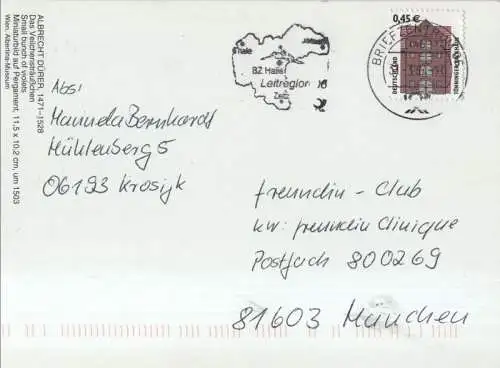 ALBRECHT DÜRER, 1471–1528
Das Veilchensträußchen
Small bunch of violets
Miniaturbild auf Pergament, 11,5 x 10,2 cm, um 1503
Wien, Albertina-Museum
Abs:
Manuela Bernhardt
Mühlenberg 5
06193 Krosigk
BZ Halle
Leitregion 06
Zeitz
BRIEFZENTRUM
0,45 €
DEUTSCHLAND
freundin - Club
kw: freundin Clinique
Postfach 800269
81603 München